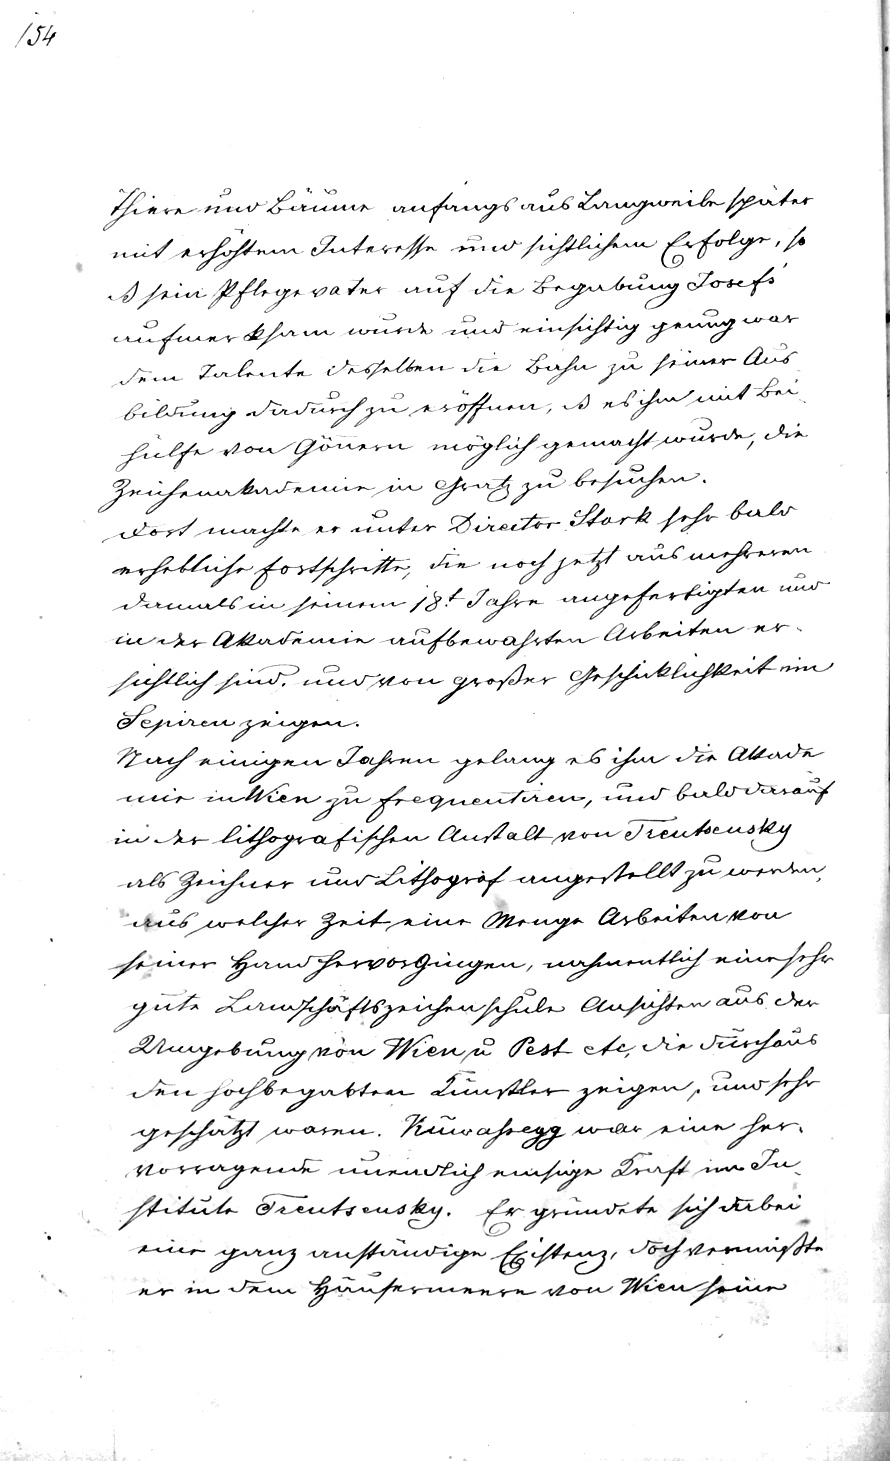 154
Thiere und Bäume anfangs aus Langweile später
mit erhöhtem Interesse und sichtlichem Erfolge, so
ß sein Pflegevater auf die Begabung Josefs
aufmerksam wurde und einsichtig genug war
dem Talente desselben die Bahn zu seiner Aus
bildung dadurch zu eröffnen, ß es ihm mit Bei
hülfe von Gönnern möglich gemacht wurde, die
Zeichenakademie in Gratz zu besuchen.
Dort machte er unter Director Stark sehr bald
erhebliche Fortschritte, die noch jetzt aus mehreren
damals in seinem 18t Jahre angefertigten und
in der Akademie aufbewahrten Arbeiten er-
sichtlich sind, und von großer Geschicklichkeit im
Sepiren zeigen.
Nach einigen Jahren gelang es ihm die Akade
mie in Wien zu frequentiren, und bald darauf
in der lithografischen Anstalt von Trentsensky
als Zeichner und Lithograf angestellt zu werden,
aus welcher Zeit eine Menge Arbeiten von
seiner Hand hervorgingen, nahmentlich eine sehr
gute Landschäftszeichenschule Ansichten aus der
Umgebung von Wien u Pest etc, die durchaus
den hochbegabten Künstler zeigen, und sehr
geschätzt waren. Kuwahsegg war eine her-
vorragende unendlich emsige Kraft im In-
stitute Trentsensky. Er gründete sich dabei
eine ganz anständige Existenz, doch vermißte
er in dem Häusermeere von Wien seine